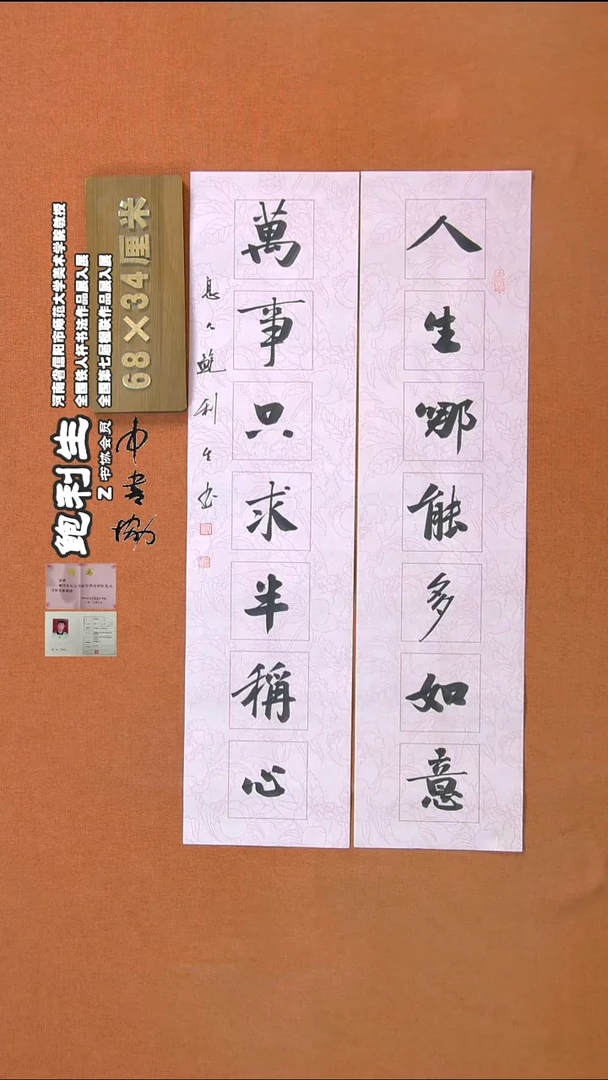 人生哪能多如意
萬事只求半稱心
息人鲍利生书
68×34厘米
河南省信阳市师范大学美术学院教授
全国铁人杯书法作品展入展
全国第七届楹联作品展入展
鲍利生
Z书协会员
中书协